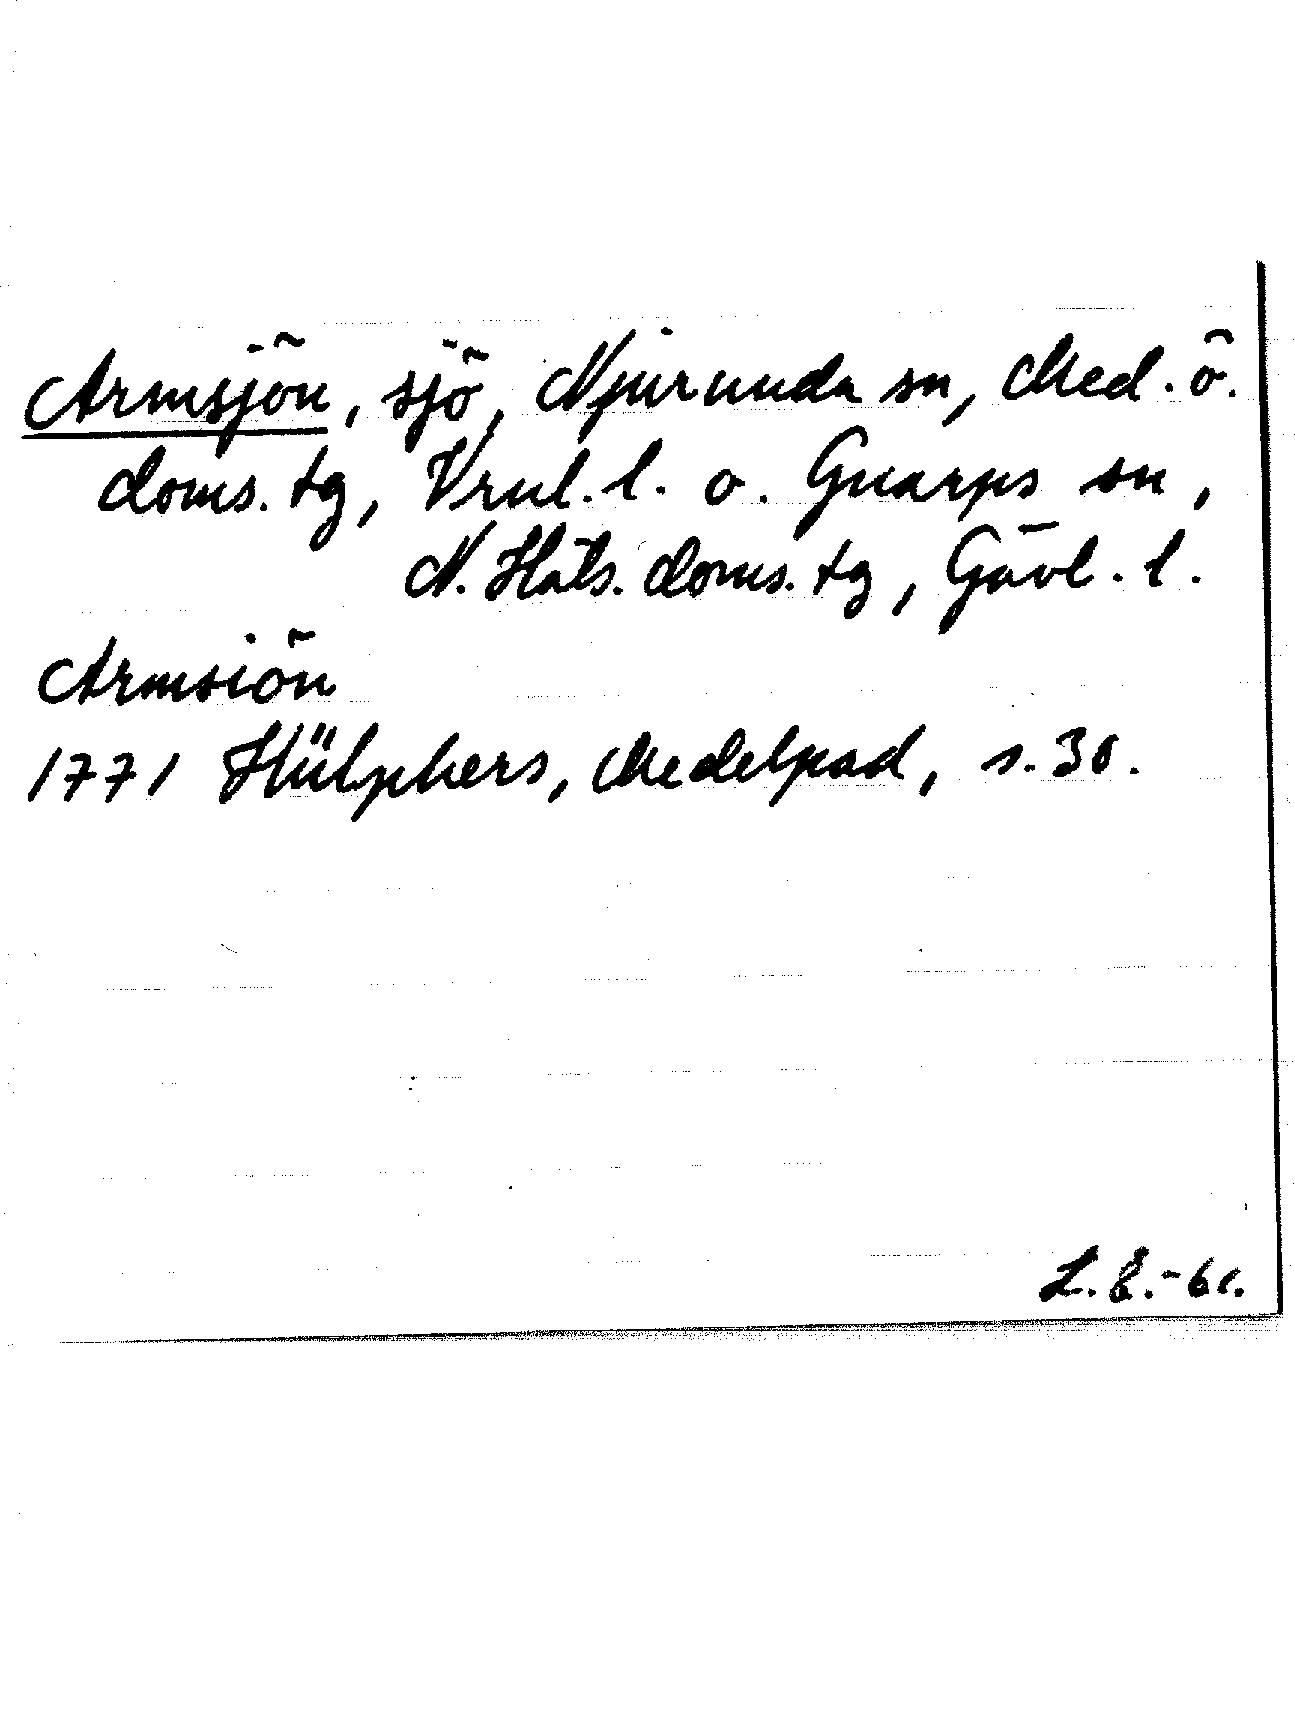 Armsjön, sjö, Njurunda sn, Med. ö.
doms. tg, Vrnl. l. o. Gnarps sn,
N. Häls. doms. tg, Gävl. l.
Armsiön
1771 Hülphers, Medelpad, s. 30.
L. E. -61.